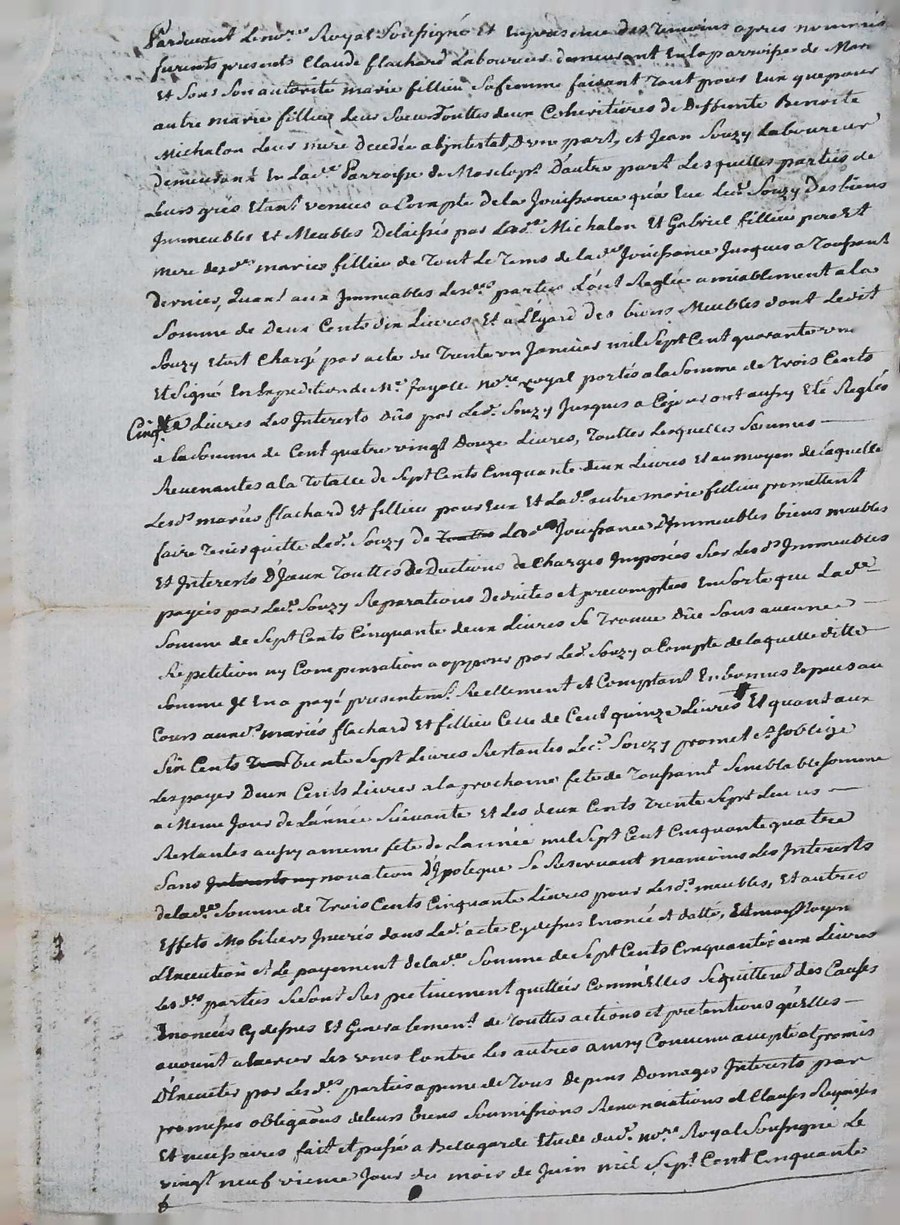 Pardevant le no.re Royal Soussigné et en presence des temoins apres nommés
furents presents Claude flachard Laboureur demeurant en la parroisse de Mar
Et Sous Son autorité marie fillieu Sa femme faisant tant pour Eux que pour
autre marie fillieu leur Soeur touttes deux Coheritieres de Deffunte Benoite
Michalon leur mere decedée abjntestat, D'une part, et Jean Souzy Laboureur
demeurant En lad.e Parroisse de Marclopt D'autre part Lesquelles parties de
leurs grés Etant venues a Compte de la Jouissance qu'a Eue led. Souzy Des biens
Jmmeubles et Meubles Delaissés par lad.e Michalon et Gabriel fillieu pere Et
mere desd.es maries fillieu de tout le tems de lad.e Jouissance Jusques a Toussaint
Dernier, Quant aux Jmmeubles lesd.es parties l'ont Reglée amiablement a la
Somme de Deux Cents dix Livres Et a l'Egard des biens Meubles dont ledit
Souzy Etoit Chargé par acte du trente un Janvier mil Sept Cent quarante un
Et Signé En Expedition de M.e fayolle no.re royal portés a la Somme de trois Cents
Cinq.te Livres les Interests Dûs par led. Souzy Jusques a Ce jour ont aussy Eté Reglés
a la Somme de Cent quatre vingt Douze Livres, Touttes Lesquelles Sommes
Revenantes a la totalle de Sept Cents Cinquante deux Livres Et au moyen de laquelle
Lesd.s mariés flachard Et fillieu pour Eux Et lad.e autre marie fillieu promettent
faire tenir quitte led. Souzy de lad.e Jouissance D'Jmmeubles biens meubles
Et Interests D'Jceux Touttes Deductions de Charges Jmposés Sur Lesd.s Jmmeubles
payés par led. Souzy Reparations Deduites et precomptées En Sorte que Lad.e
Somme de Sept Cents Cinquante deux Livres Se Trouve Düe Sans aucune
Repetition ny Compensation a opposer par led. Souzy a Compte de laquelle ditte
Somme Jl En a payé presentem.t Reellement et Comptant En bonnes Especes au
Cours auxd.s mariés flachard Et fillieu Celle de Cent quinze Livres Et quant aux
Six Cents trente Sept Livres Restantes Led. Souzy promet et s'oblige
Les payer Deux Cents Livres a la prochaine fete de Toussaint Semblable Somme
a meme Jour de l'année Suivante Et les deux Cents Trente Sept Livres
Restantes aussy a meme fête de L'année mil Sept Cent Cinquante quatre
Sans Interests ny novation D'Ipoteque Se Reservant neamoins Les Interests
de lad.e Somme de Trois Cents Cinquante Livres pour les d.s meubles, Et autres
Effets Mobiliers Jnserés dans led. acte Cy dessus Enoncé et datté, Et moyenant
L'Execution et le payement de lad.e Somme de Sept Cents Cinquante deux Livres
Les d.es parties Se Sont Respectivement quittées Comm'Elles Se quittent des Causes
Enoncées Cy dessus Et Generalement de Touttes actions et pretentions qu'Elles
avoient a Exercer les unes Contre les autres ainsy Convenu accepté et promis
D'Executer par Les d.es parties a peine de Tous Depens Domages Interests par
promesses obligaons de leurs biens Soumissions Renonciations et Clauses Requises
Et necessaires fait et passé a Bellegarde Etude dud. no.re Royal Soussigné Le
vingt neuf vieme Jour du mois de Juin mil Sept Cent Cinquante